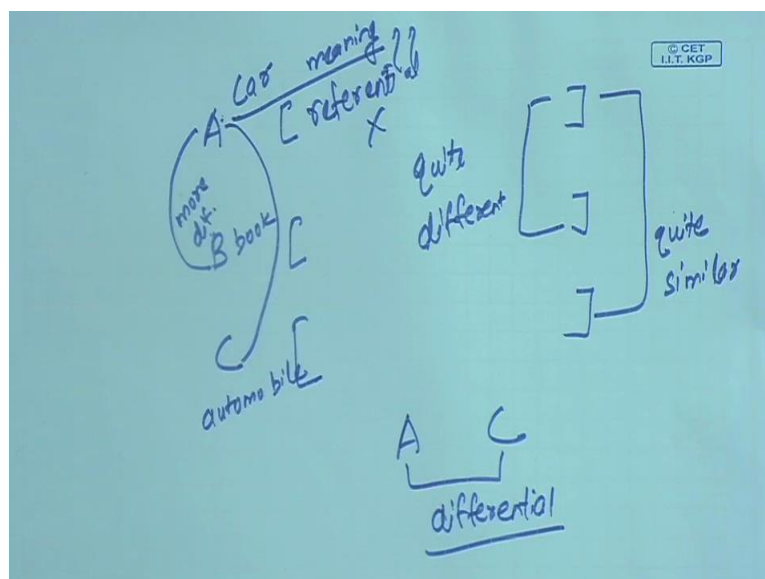 © CET
I.I.T. KGP
A Car meaning ??
[ referential
X
more
dif.
B book [
C [
automobile
]
]
]
quite
different
quite
similar
A C
differential